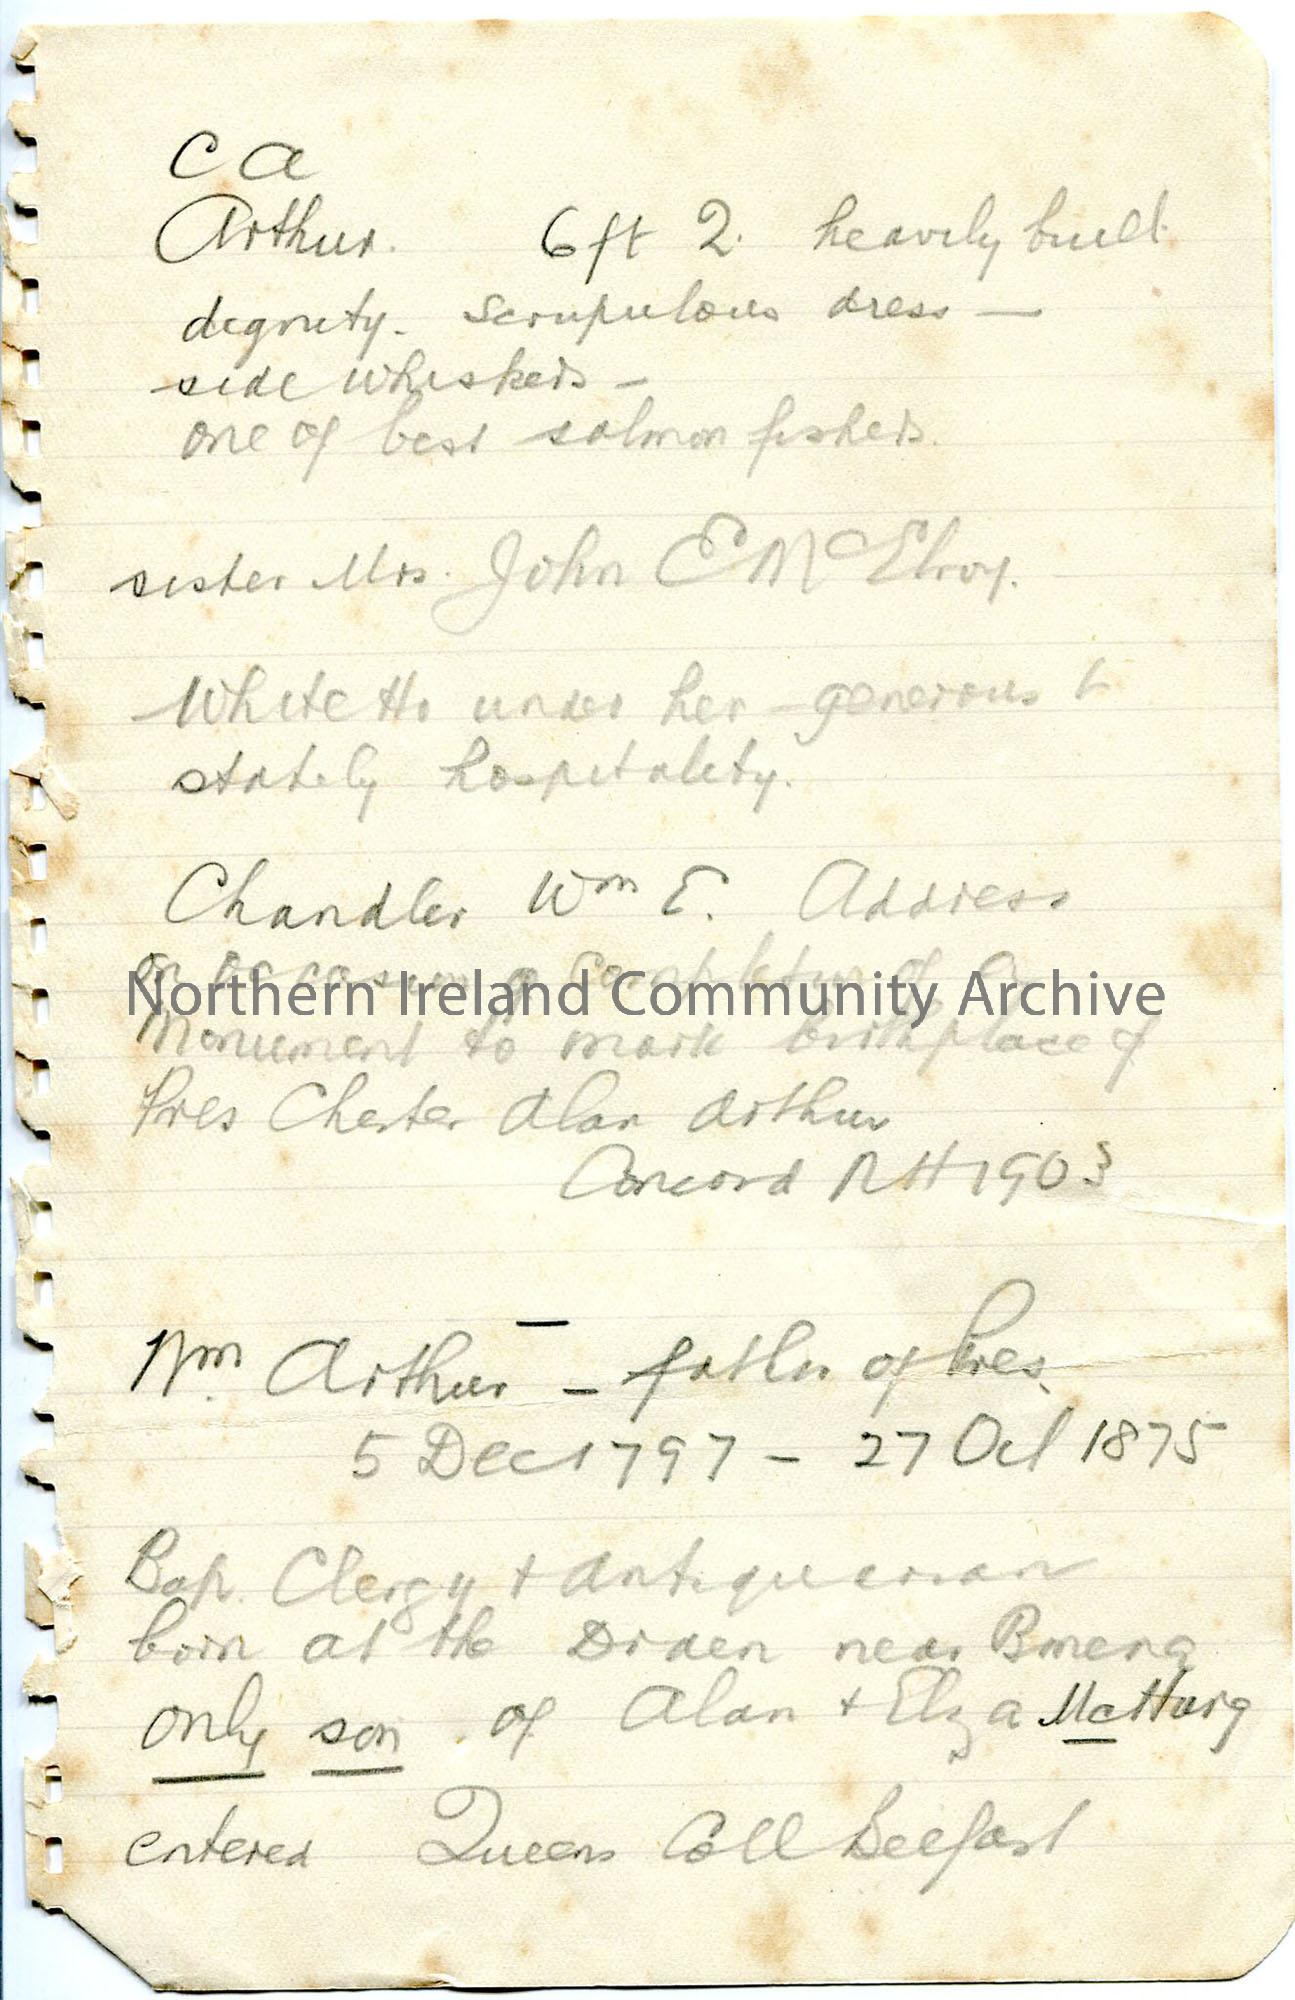 C A
Arthur. 6 ft 2. heavily built
dignity. Scrupulous dress —
side whiskers —
one of best salmon fishers.
sister Mrs. John E McElroy.
White Ho under her generous &
stately hospitality.
Chandler Wm E. Address
on occasion of completion of a
Northern Ireland Community Archive
Monument to mark birthplace of
Pres Chester Alan Arthur
Concord NH 1903
Wm. Arthur — father of Pres.
5 Dec 1797 — 27 Oct 1875
Bap. Clergy + antiquarian
born at the Draen near Bmena
only son of Alan + Eliza McHarg
entered Queens Coll Belfast